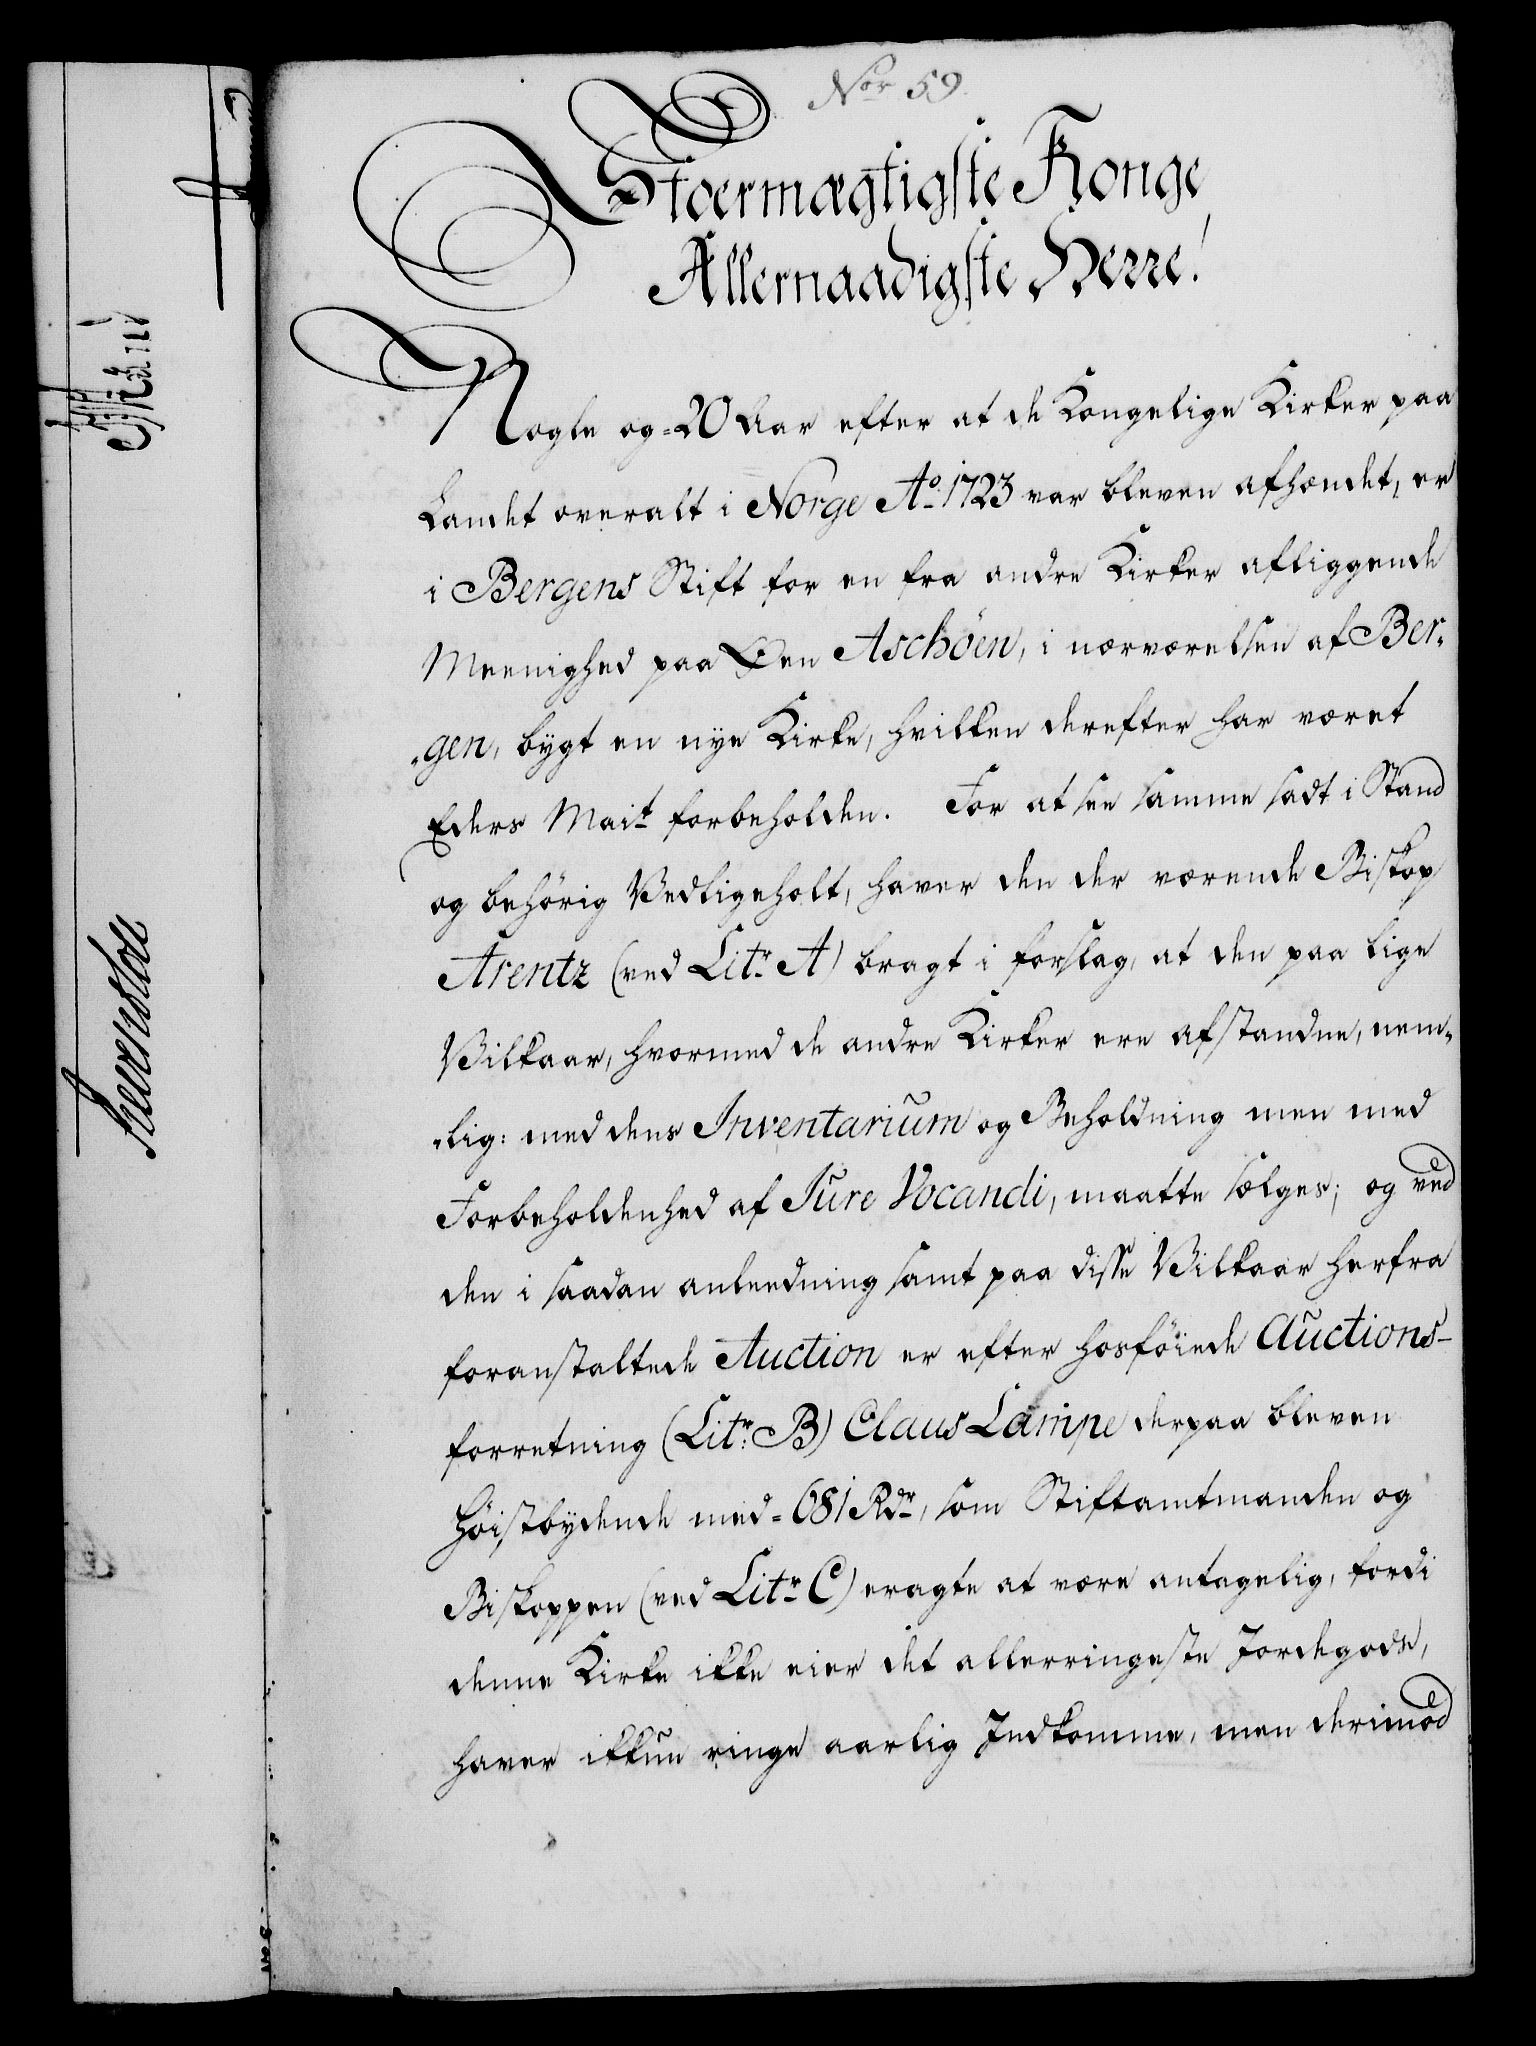 Nor 59.
Stoermægtigste Konge
Allernaadigste Herre!
Nogle og-20 Aar efter at de Kongelige Kirker paa
Landet overalt i Norge Ao 1723 var bleven afhændet, er
i Bergens Stift for en fra andre Kirker afliggende
Meenighed paa Øen Aschöen, i nærværelsen af Ber-
-gen, bygt en nye Kirke, hvilken derefter har været
Eders Mait forbeholden. For at see samme sadt i Stand
og behörig Vedligeholt, haver den der værende Biskop
Arentz (ved Litr A) bragt i forslag, at den paa lige
Vilkaar, hvormed de andre Kirker ere afstandne, nem-
-lig: med dens Inventarium og Beholdning men med
Forbeholdenhed af Jure Vocandi, maatte sælges; og ved
den i saadan anleedning samt paa disse Vilkaar herfra
foranstaltede Auction er efter hosföiede Auctions-
forretning (Litr: B) Claus Lampe derpaa bleven
höistbydende med-681 Rdr, som Stiftamtmanden og
Biskoppen (ved Litr C) eragte at være antagelig, fordi
denne Kirke ikke eier det allerringeste Jordegods,
haver ikkun ringe aarlig Indkomme, men derimod